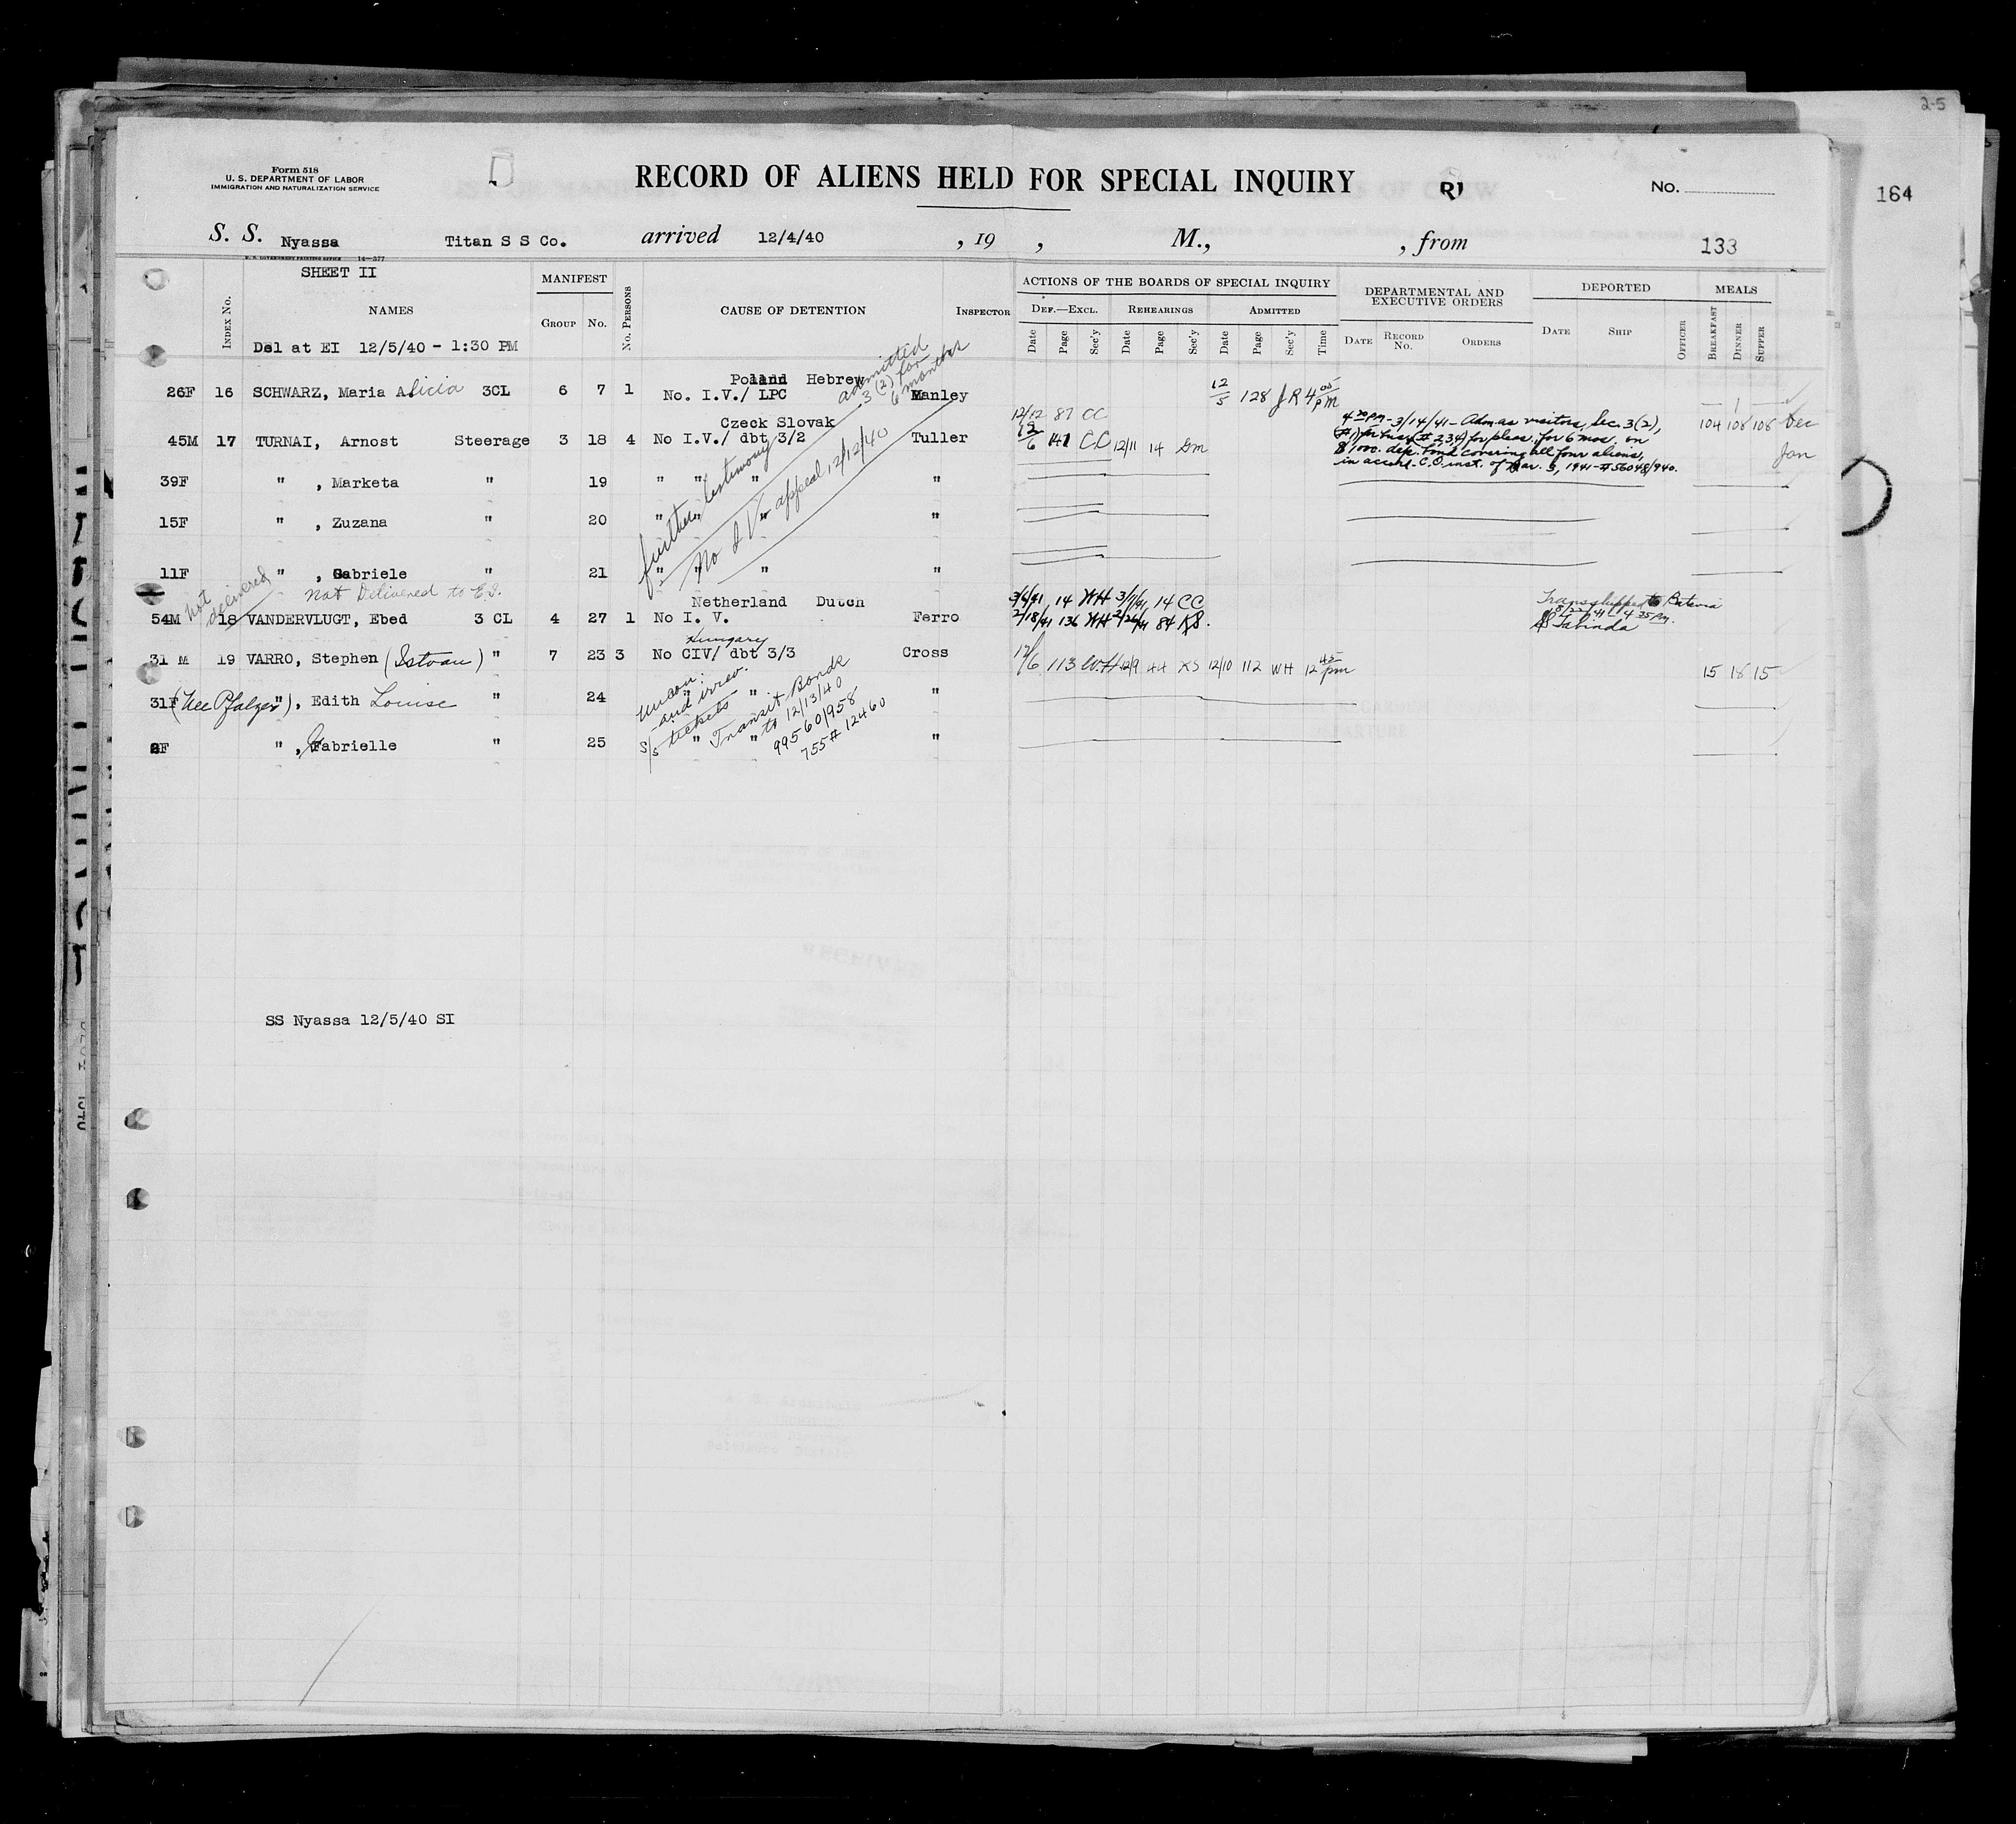 2-5
164
Form 518
U. S. DEPARTMENT OF LABOR
IMMIGRATION AND NATURALIZATION SERVICE
RECORD OF ALIENS HELD FOR SPECIAL INQUIRY
No.
S. S. Nyassa Titan S S Co. arrived 12/4/40 , 19 , M., , from 133
U. S. GOVERNMENT PRINTING OFFICE 14—577
SHEET II
INDEX No. NAMES MANIFEST GROUP No. No. PERSONS CAUSE OF DETENTION INSPECTOR
ACTIONS OF THE BOARDS OF SPECIAL INQUIRY
DEF.—EXCL. REHEARINGS ADMITTED
Date Page Sec'y Date Page Sec'y Date Page Sec'y Time
DEPARTMENTAL AND EXECUTIVE ORDERS
DATE RECORD No. ORDERS
DEPORTED
DATE SHIP OFFICER
MEALS
BREAKFAST DINNER SUPPER
Del at EI 12/5/40 - 1:30 PM
admitted
3(2) for
6 months
Poland Hebrew
26F 16 SCHWARZ, Maria Alicia 3CL 6 7 1 No. I.V./ LPC Manley 12/5 128 JR 4 05 pm — 1 —
Czeck Slovak 12/12 87 CC
45M 17 TURNAI, Arnost Steerage 3 18 4 No I.V./ dbt 3/2 Tuller 12/6 141 CC 12/11 14 GM
4 30 PM - 3/14/41 - Adm. as visitors, Sec. 3(2),
(#1) for bus. (# 2,3,4) for pleas. for 6 mos. on
$1000. dep. bond covering all four aliens,
in accord. C.O. inst. of Mar. 3, 1941 - # 56048/940.
104 108 108 Dec
Jan
39F " , Marketa " 19 " " " "
15F " , Zuzana " 20 " " " "
11F " , Gabriele " 21 " " " "
further testimony
No I V appeal 12/12/40
not delivered
not Delivered to E.I.
Netherland Dutch 3/6/41 14 WH 3/11/41 14 CC
54M 18 VANDERVLUGT, Ebed 3 CL 4 27 1 No I. V. Ferro 2/18/41 136 WH 2/26/41 84 KS.
Transshipped to Batavia
8/22/41 4 35 Pm.
SS Tabinda
Hungary
31 M 19 VARRO, Stephen (Istvan) " 7 23 3 No CIV/ dbt 3/3 Cross 12/6 113 W.H 12/9 44 KS 12/10 112 WH 12 45 pm 15 18 15
31F (Nee Pfalzer") , Edith Louise " 24 " " "
F " , Gabrielle " 25 " " "
uncon.
and irrev.
S/S tickets
Transit Bonds
to 12/13/40
99560/958
755# 12460
SS Nyassa 12/5/40 SI